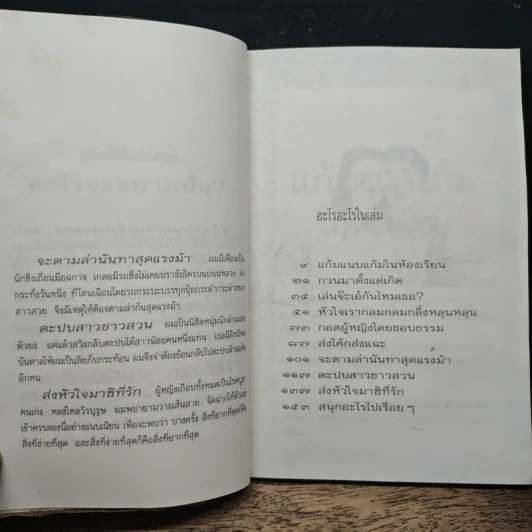 จะตามล่านันทาสุดแรงม้า ผมมีเพื่อนเป็น
นักซิ่งเถื่อนมือฉกาจ เกลอมีรถซิ่งไม่เคยปราชัยใครบนถนนหลวง จน
กระทั่งวันหนึ่ง ที่โดนเฉือนโดยรถกระบะบรรทุกปุ๋ยกระดำกระด่างของ
สาวสวย จึงมีเหตุให้ต้องตามล่ากันสุดแรงม้า
ตะปบสาวชาวสวน ผมเป็นนิสิตหนุ่มนักล่าแมลง
ด้วยง แต่แล้วสวิงกลับตะปบได้สาวน้อยคนหนึ่งแทน เธอมีอิทธิพล
บันดาลให้ผมเป็นลิงเก็บกระท้อน ผมจึงจำต้องย้อนกลับไปตะปบล้างแค้น
อีกหน
ส่งหัวใจมาซิที่รัก ผู้หญิงเกือบทั้งหมดเป็นโรคบูชา
คนเก่ง หลงใหลวีรบุรุษ ผมพยายามวางเส้นสาย จัดฉากให้ตัวเอง
เข้าครรลองนี้อย่างแนบเนียน เพื่อจะพบว่า บางครั้ง สิ่งที่ยากที่สุดก็คือ
สิ่งที่ง่ายที่สุด และสิ่งที่ง่ายที่สุดก็คือสิ่งที่ยากที่สุด
อะไรอะไรในเล่ม
๙ แก้มแนบแก้มในห้องเรียน
๒๑ กวนมาตั้งแต่เกิด
๓๕ เล่นจ๊ะเอ๋กันไหมเธอ?
๕๑ หัวใจเรากลมกลมกลิ้งหลุนหลุน
๗๓ กอดผู้หญิงโดยชอบธรรม
๘๗ ส่งโค้กส่งแฉะ
๑๐๑ จะตามล่านันทาสุดแรงม้า
๑๑๗ ตะปบสาวชาวสวน
๑๓๗ ส่งหัวใจมาซิที่รัก
๑๕๓ สนุกอะไรไปเรื่อย ๆ